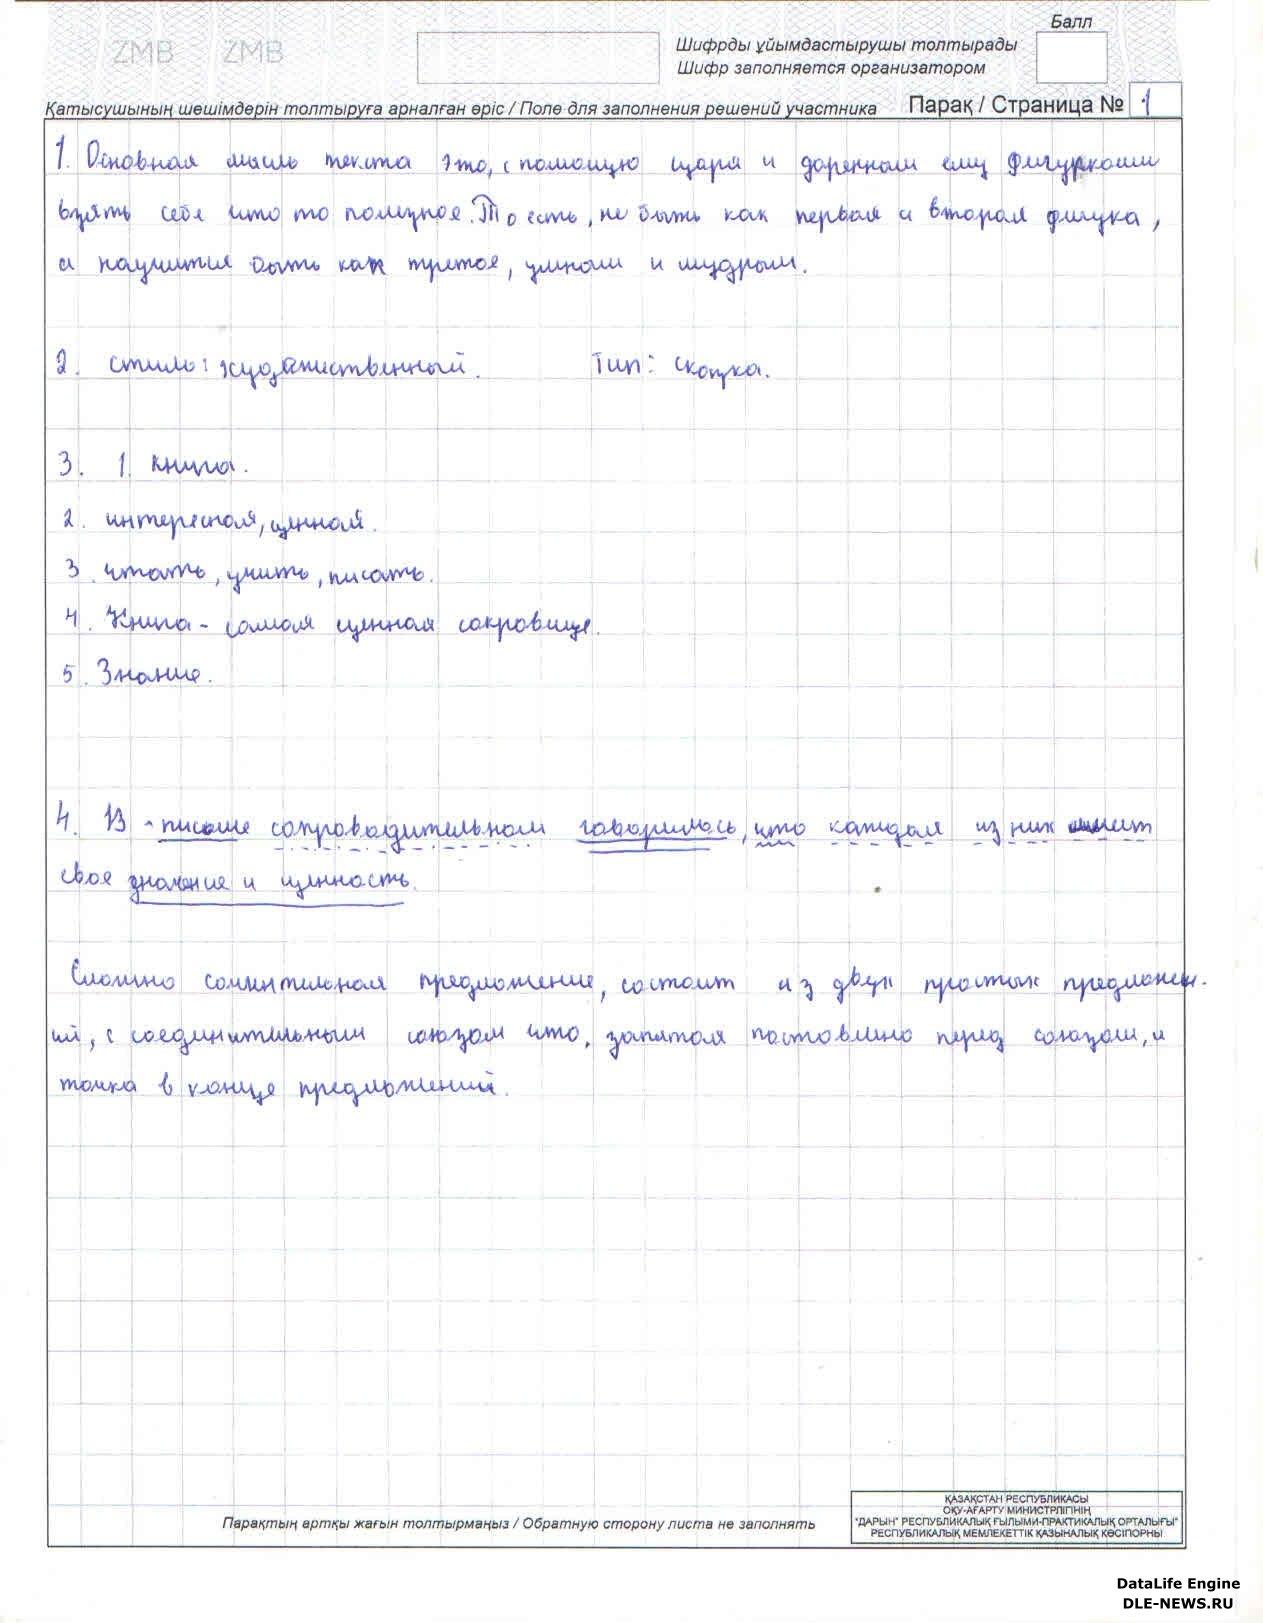 ZMB ZMB
Балл
Шифрды ұйымдастырушы толтырады
Шифр заполняется организатором
Қатысушының шешімдерін толтыруға арналған өріс / Поле для заполнения решений участника
Парақ / Страница № 1
1. Основная мысль текста это, с помощую царя и даренном ему фигурками
взять себя что то полезное. То есть, не быть как первая и вторая фигука,
а научится быть как третое, умном и мудрым.
2. стиль: художественный. Тип: сказка.
3. 1. книга.
2. интересная, ценная.
3. читать, учить, писать.
4. Книга - самая ценная сокровище.
5. Знание.
4. В письме сопроводительном говорилось, что каждая из них имеет
свое значение и ценность.
Сложно сочинительная предложение, состоит из двух простых предложен-
ий, с соединительным союзом что, запятая поставлино перед союзом, и
точка в конце предложений.
Парақтың артқы жағын толтырмаңыз / Обратную сторону листа не заполнять
ҚАЗАҚСТАН РЕСПУБЛИКАСЫ
ОҚУ-АҒАРТУ МИНИСТРЛІГІНІҢ
"ДАРЫН" РЕСПУБЛИКАЛЫҚ ҒЫЛЫМИ-ПРАКТИКАЛЫҚ ОРТАЛЫҒЫ"
РЕСПУБЛИКАЛЫҚ МЕМЛЕКЕТТІК ҚАЗЫНАЛЫҚ КӘСІПОРНЫ
DataLife Engine
DLE-NEWS.RU